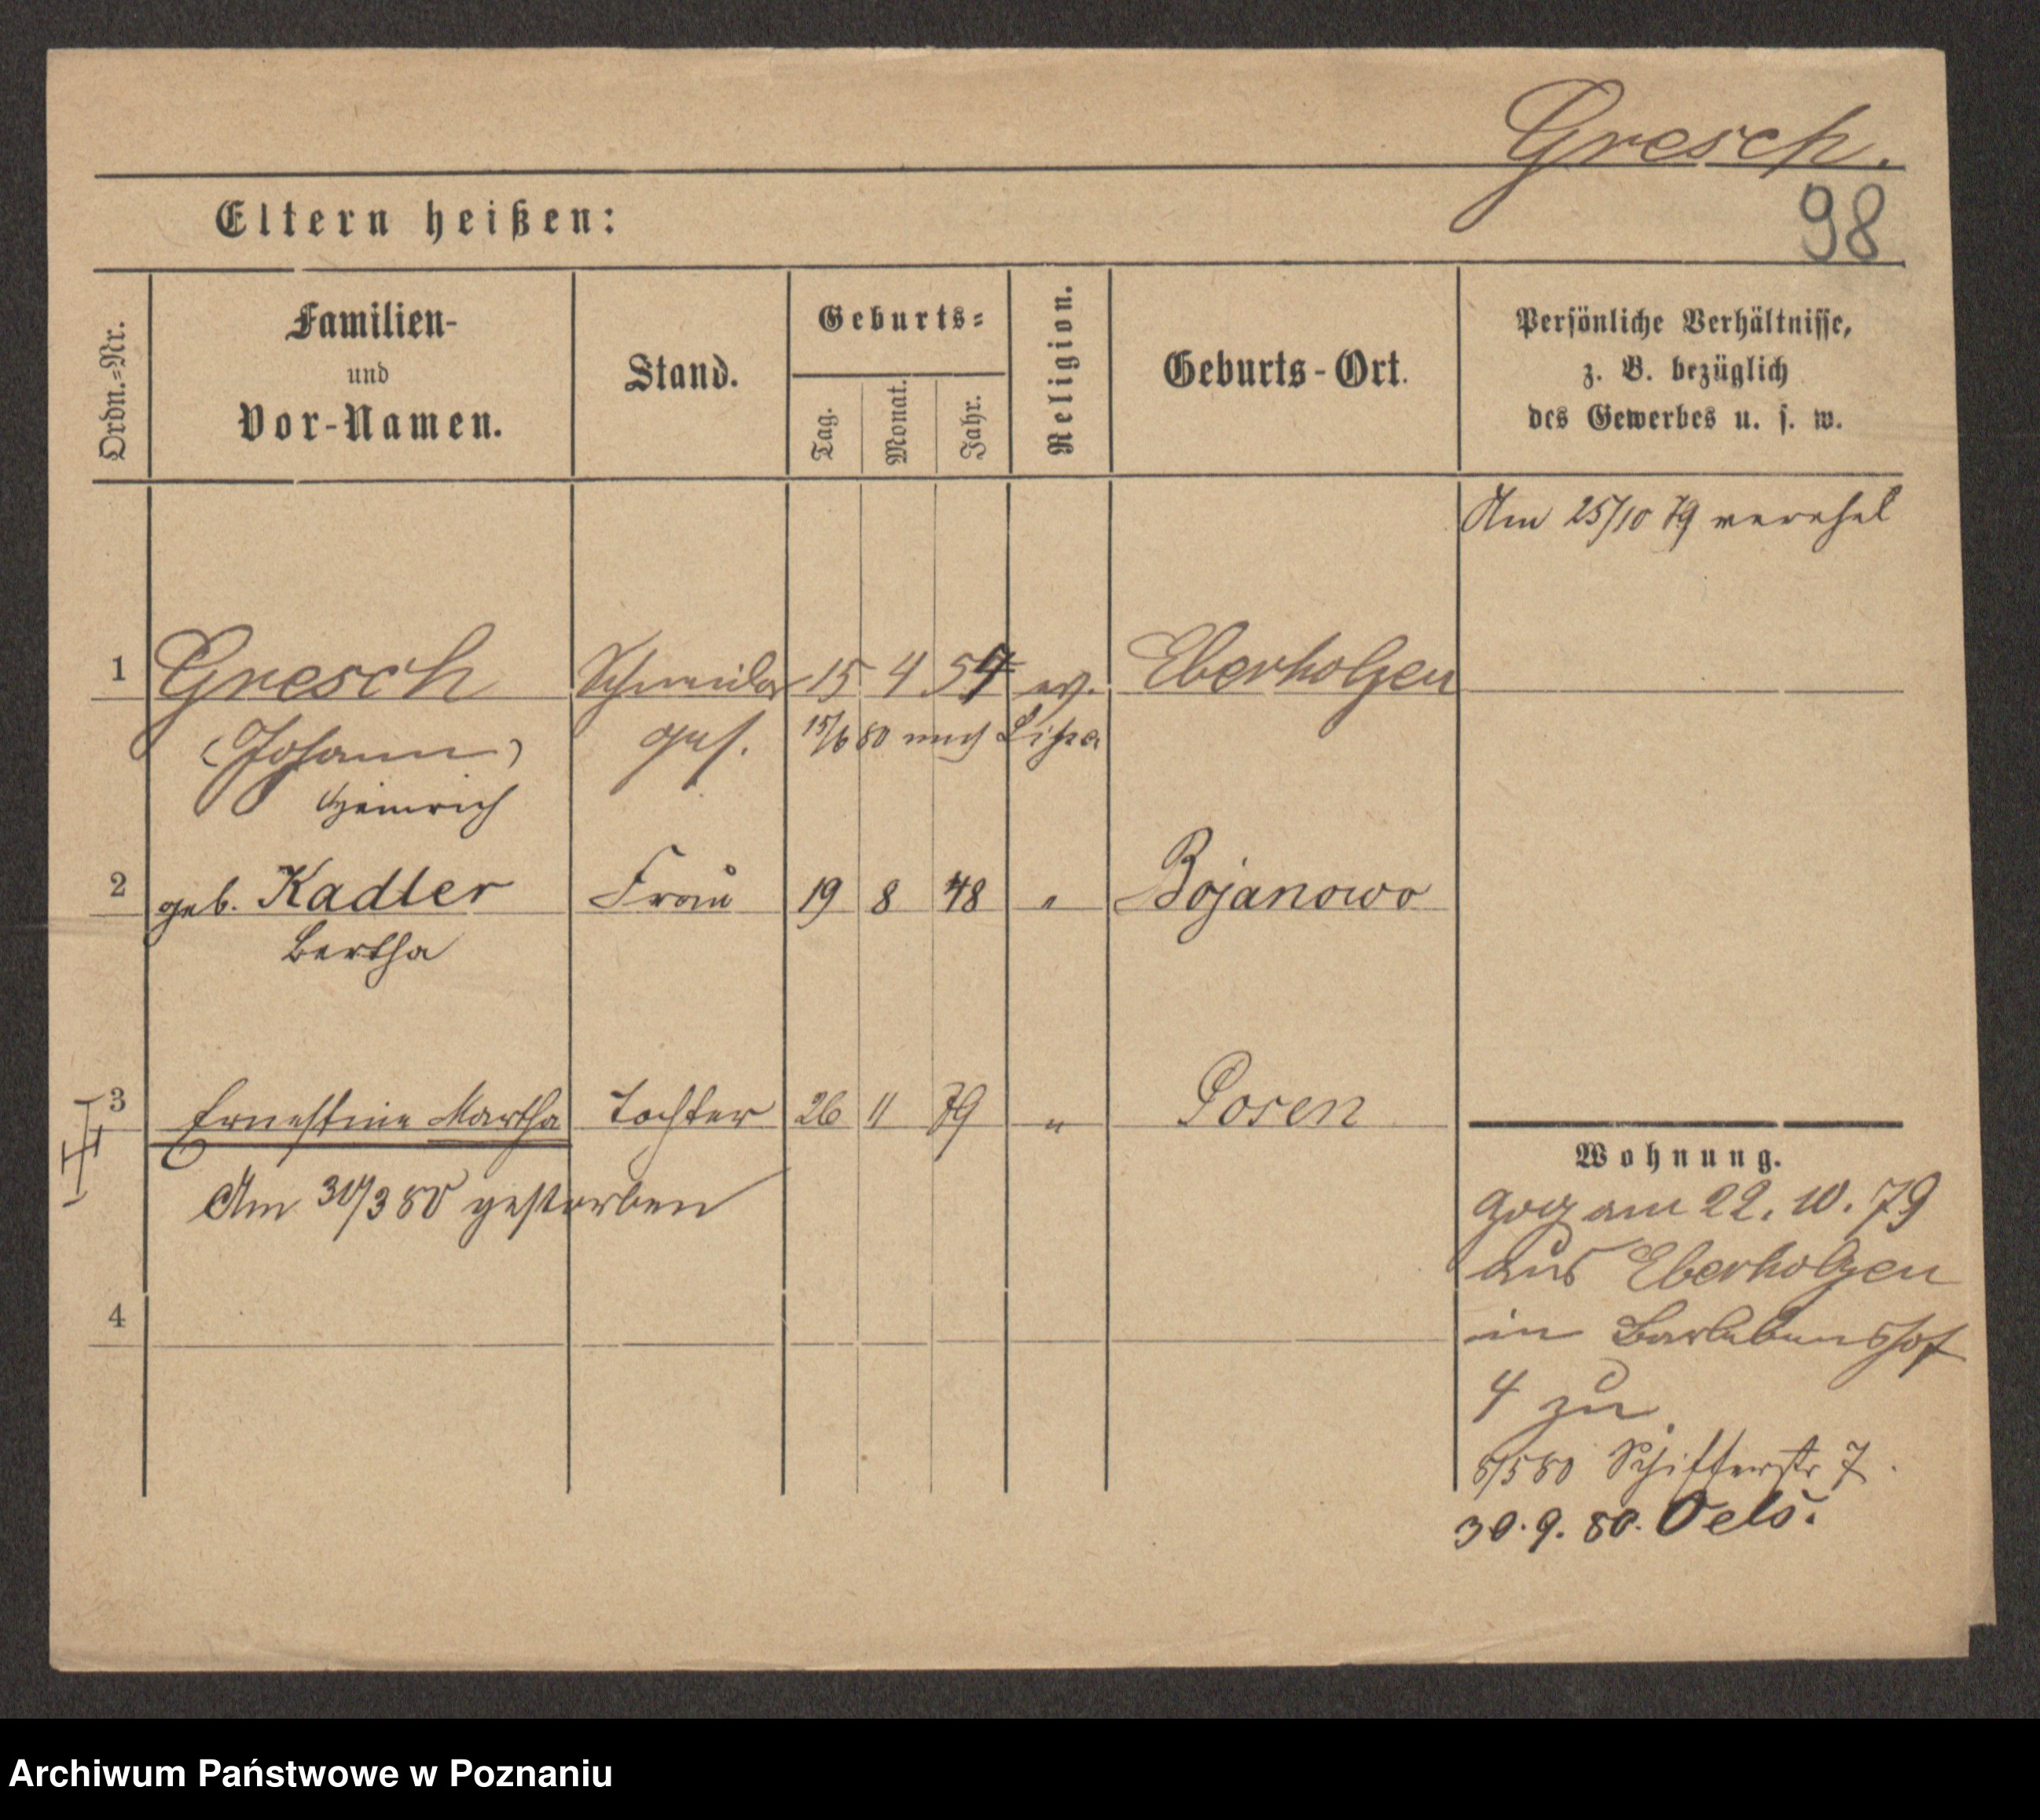 Gresch.
98
Eltern heißen:
Ordn.=Nr.
Familien-
und
Vor-Namen.
Stand.
Geburts=
Tag.
Monat.
Jahr.
Religion.
Geburts-Ort.
Persönliche Verhältnisse,
z. B. bezüglich
des Gewerbes u. s. w.
Am 25/10 79 verehel
1 Gresch Schneider 15 4 54 ev. Eberholzen
(Johann) ges. 15/6 80 nach Lissa
Heinrich
2 geb. Kadler Frau 19 8 48 " Bojanowo
Bertha
3 Ernestine Martha Tochter 26 11 79 " Posen
Am 30/3 80 gestorben
4
Wohnung.
zog am 22. 10. 79
aus Eberholzen
in Barlebenshof
4 zu
5/5 80 Schifferstr 7.
30. 9. 80. Oels.
Archiwum Państwowe w Poznaniu